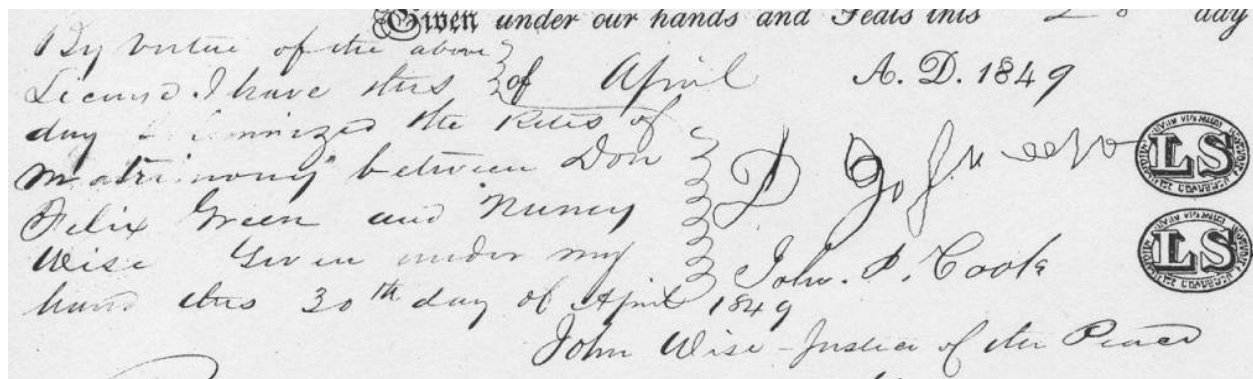 Given under our hands and Seals this 28 day
of April A. D. 1849
By Virtue of the above
License I have this
day solemnized the Rites of
Matrimony between Don
Felix Green and Nancy
Wise Given under my
hand this 30th day of April 1849
D G
LS
John. P. Cook
LS
John Wise - Justice of the Peace